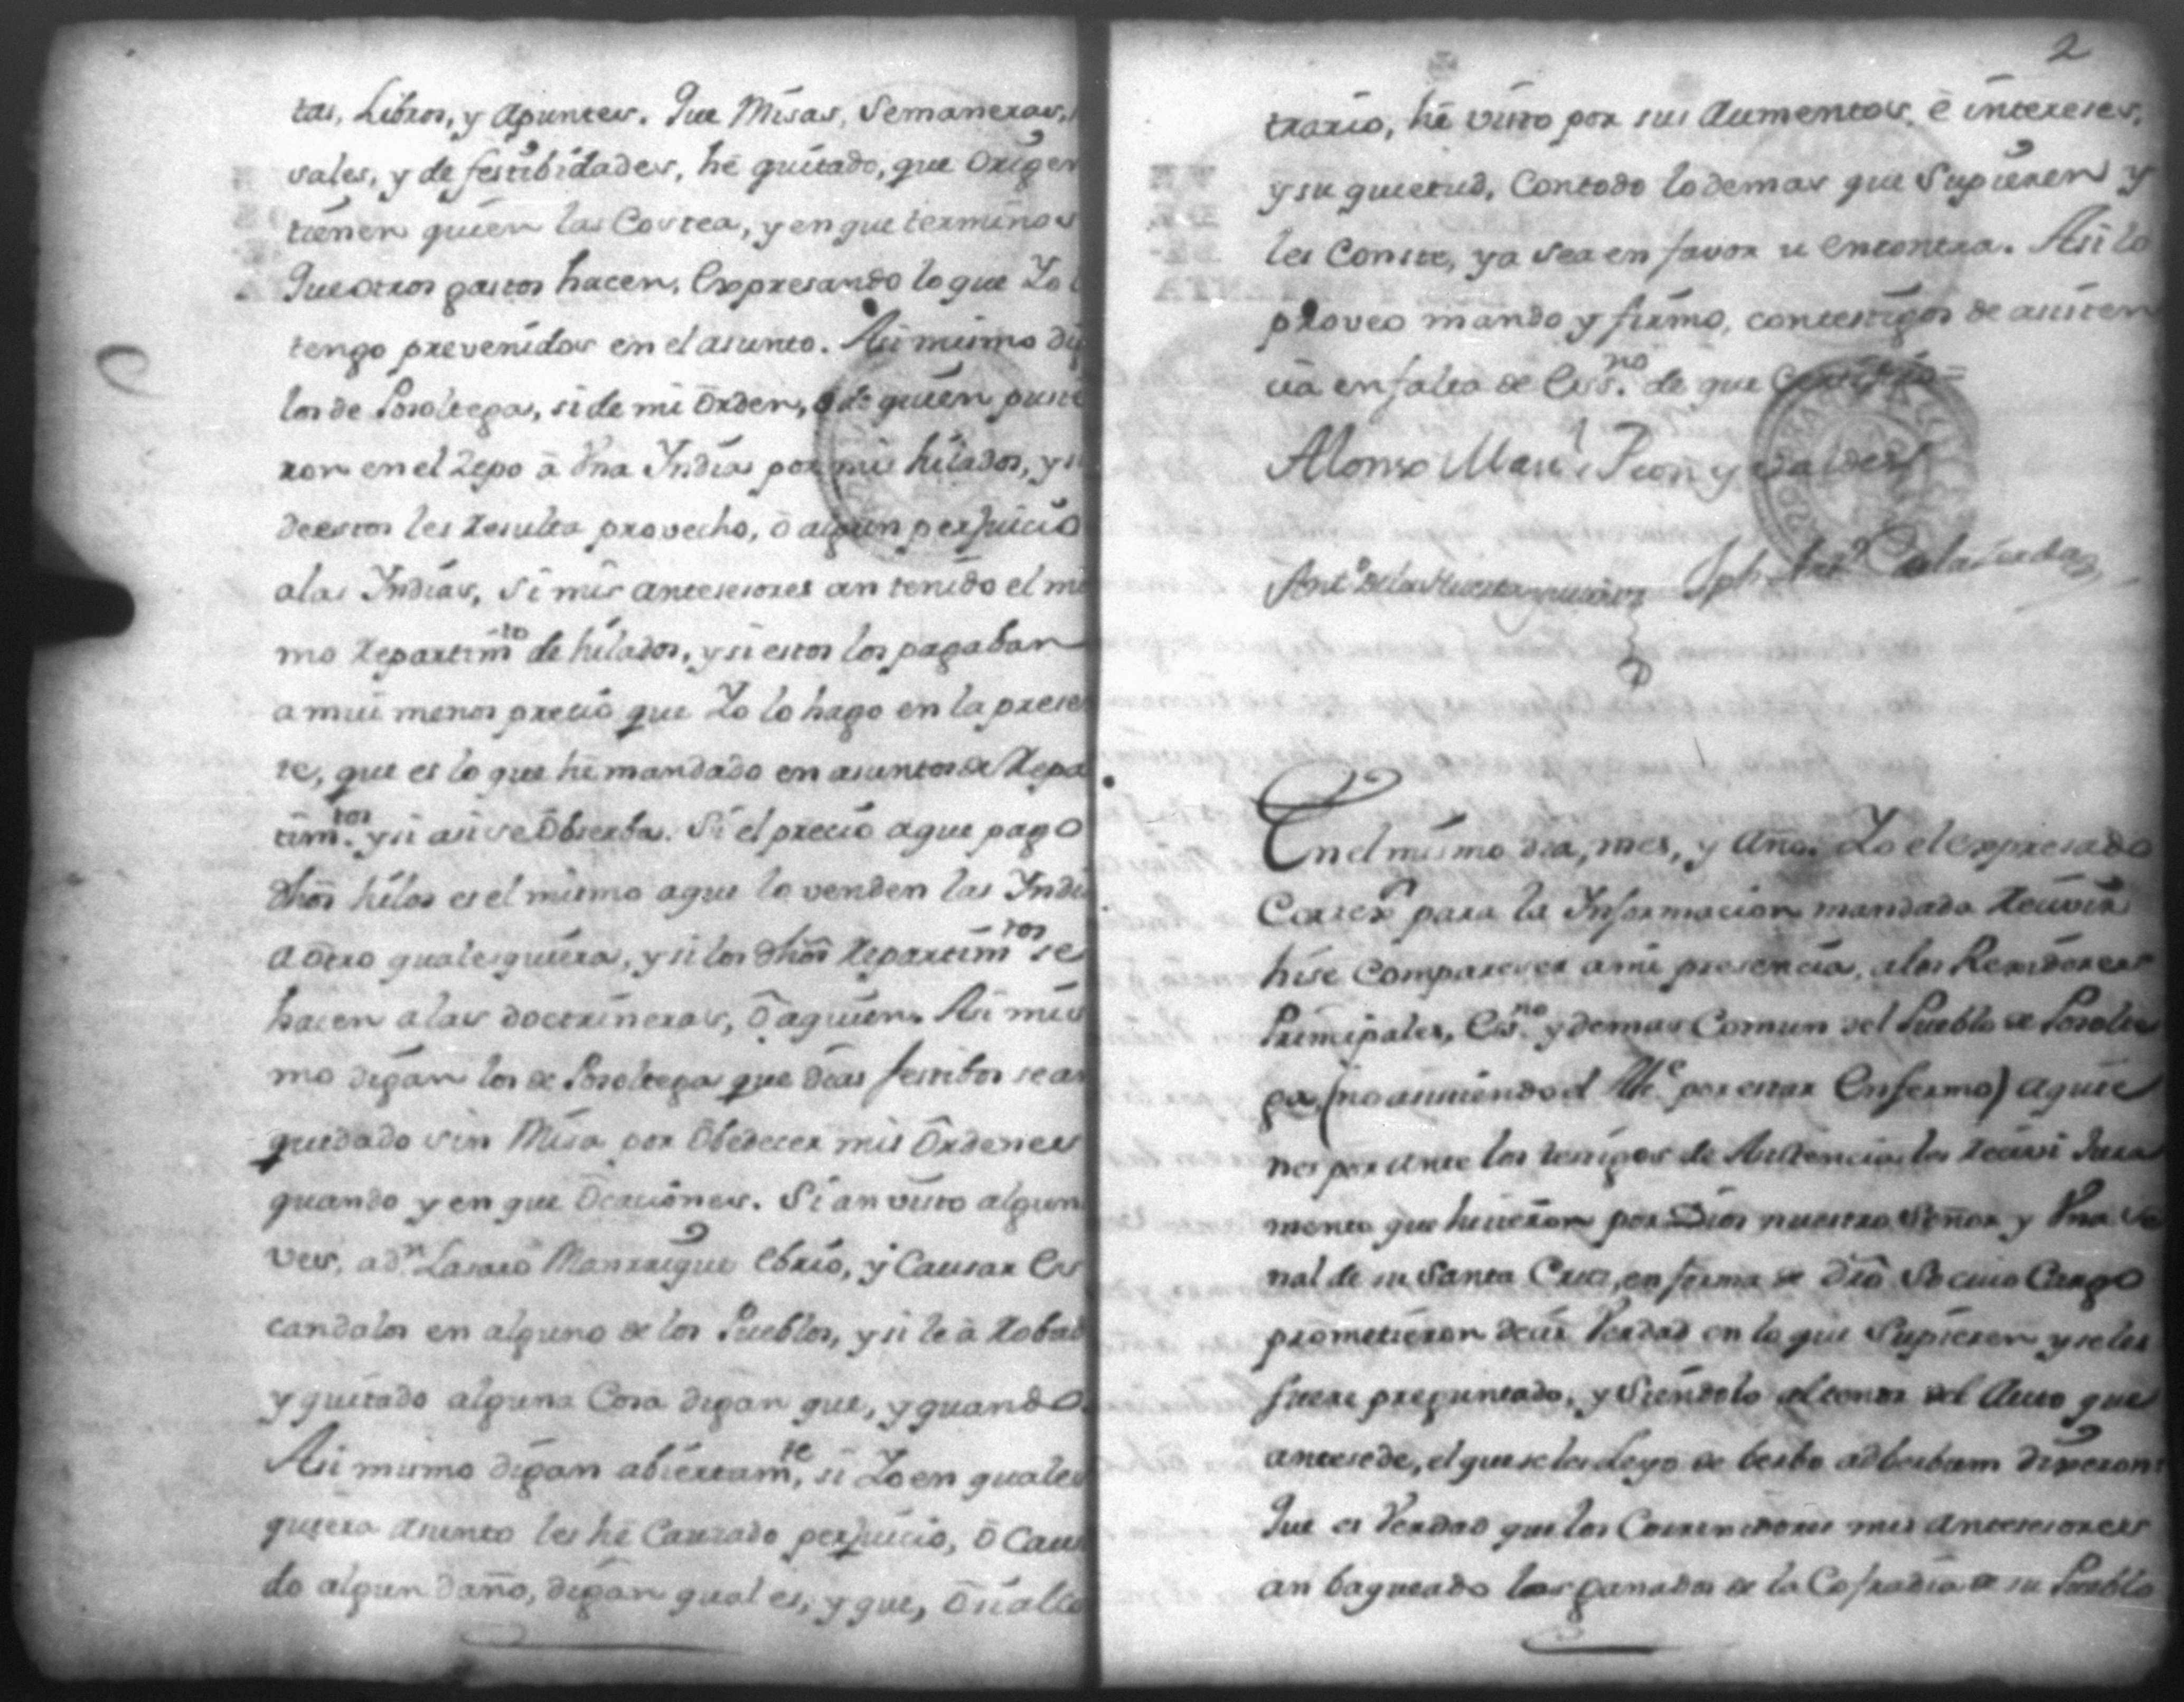 tas, Libros, y apuntes. Que Misas, Semaneras,
sales, y de festibidades, hê quitado, que Origen
tienen quien las Costea, y en que terminos
Que otros gastos hacen, Expresando lo que Yo
tengo prevenidos en el asunto. Asi mismo di
los de Posoltega, si de mi Orden, ô de quien pusie
ron en el Zepo â Vna Yndias por mis hilados, y si
de estos les Resulta provecho, ô algun perjuicio
a las Yndias, Si mis antesesores an tenido el mis
mo Repartim.to de hilados, y si estos los pagaban
a mui menos precio que Yo lo hago en la presen
te, que es lo que hê mandado en asuntos de Repar
tim.tos y si asi se Obserba. Si el precio a que pago
dhos hilos es el mismo a que lo venden las Yndi
a Otro qualesquiera, y si los dhos Repartim.tos se
hacen a las doctrineras, Ô a quien. Asi mis
mo digan los de Posoltega que dias festibos se an
quedado sin Misa por Obedecer mis Ôrdenes
quando y en que Ocaciones. Si an visto algun
ves, a d.n Lasaro Manrrique Ebrio, y Causar Es
candalos en alguno de los Pueblos, y si le â Robad
y quitado alguna Cosa digan que, y quando
Asi mismo digan abiertam.te, si Yo en quales
quiera asunto les hê Causado perjuicio, Ô Caus
do algun daño, digan qual es, y que, Ô si al co
2
trario, hê visto por sus aumentos, ê intereses,
y su quietud, Con todo lo demas que Supieren y
les Conste, ya sea en favor u en contra. Asi lo
proveo mando y firmo, con testigos de asisten
cia en falta de Ess.no de que Certifico=
Alonso Mar.l Peon y Valdes
Ant.o de la
Jph de la Cerda
En el mismo dia, mes, y Año. Yo el Expresado
Correx.r para la Informacion mandada Recivir
hise Compareser a mi presencia, a los Rexidores
Principales, Ess.no y demas Comun del Pueblo de Posolte
ga, (no asistiendo el Alc.e por estar Enfermo) a quie
nes por ante los testigos de Asistencia les recivi Jura
mento que hicieron por Dios nuestro Señor y Vna Se
ñal de su Santa Cruz, en forma de Dro So cuio Cargo
prometieron decir Verdad en lo que Supieren y se les
fuere preguntado, y Siendolo al tenor del Auto que
antesede, el que se les Leyo de berbo ad berbum dixeron:
Que es Verdad que los Corregidores mis antesesores
an baqueado los ganados de la Cofradia de su Pueblo